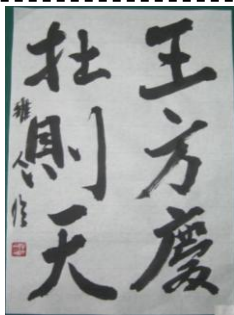 王方慶
杜則天
雅人臨